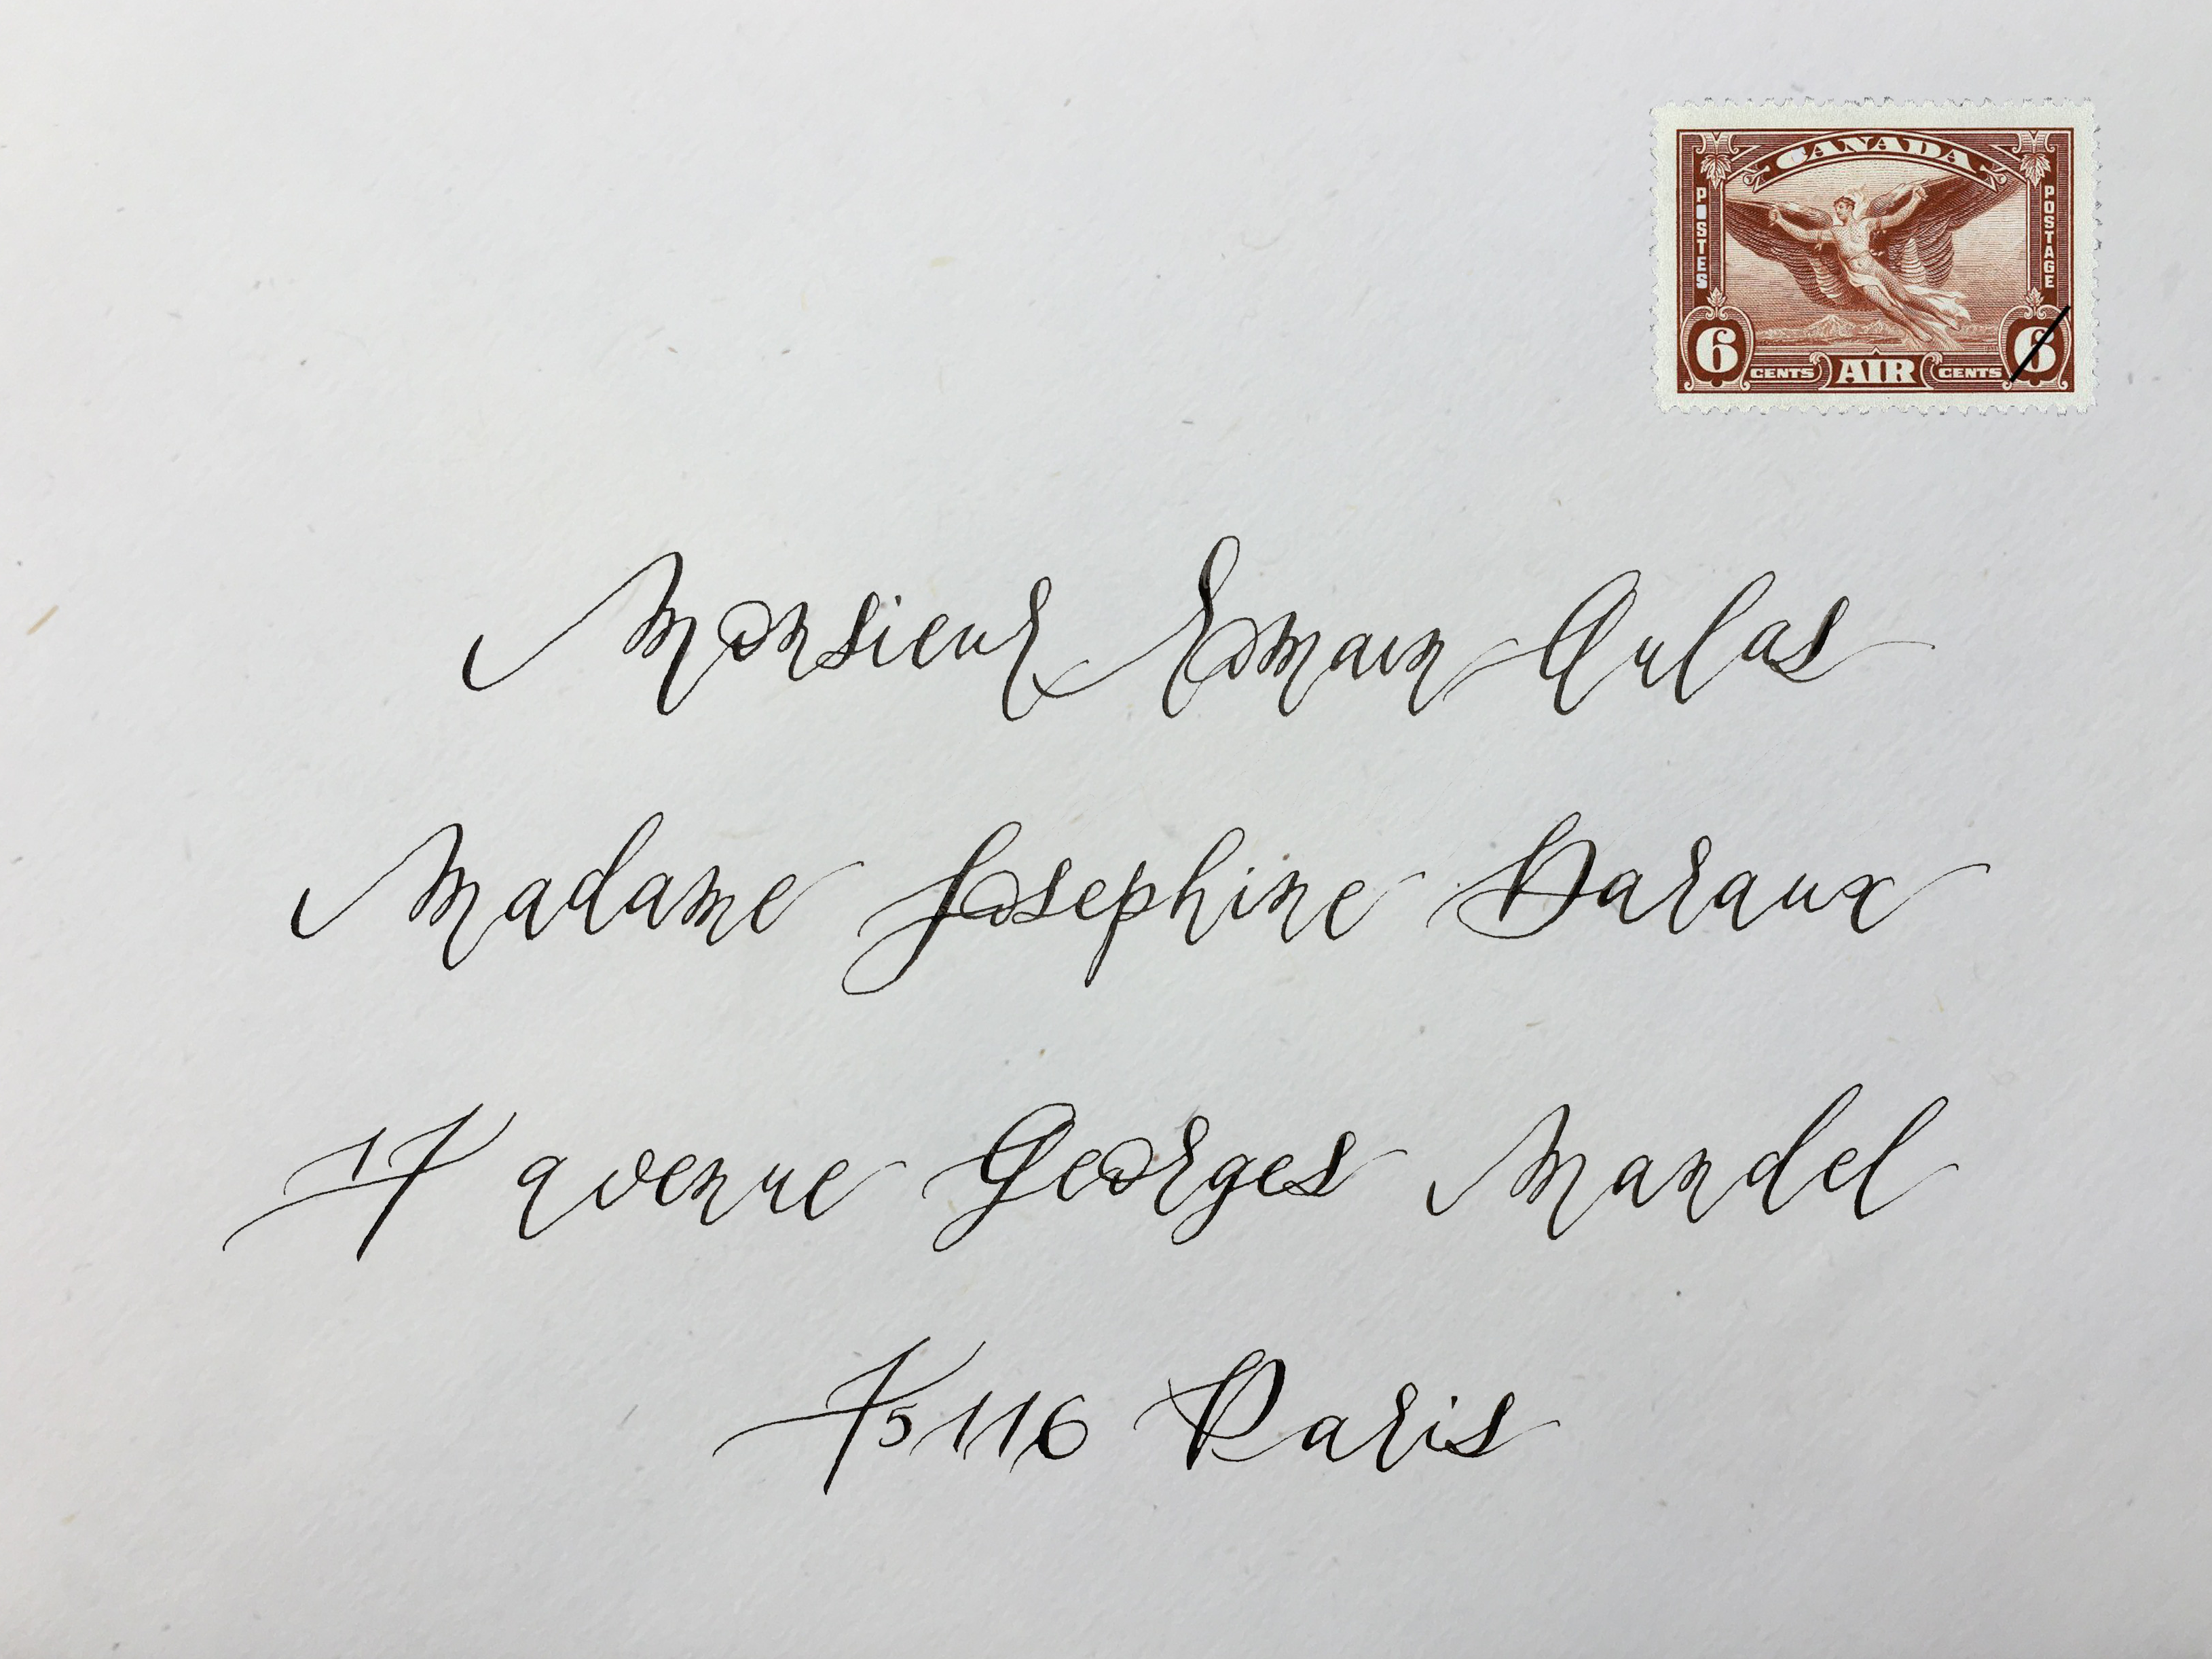 CANADA
POSTES
POSTAGE
6 CENTS AIR CENTS 6
Monsieur Romain Aulas
Madame Josephine Daraux
17 avenue Georges Mandel
75116 Paris